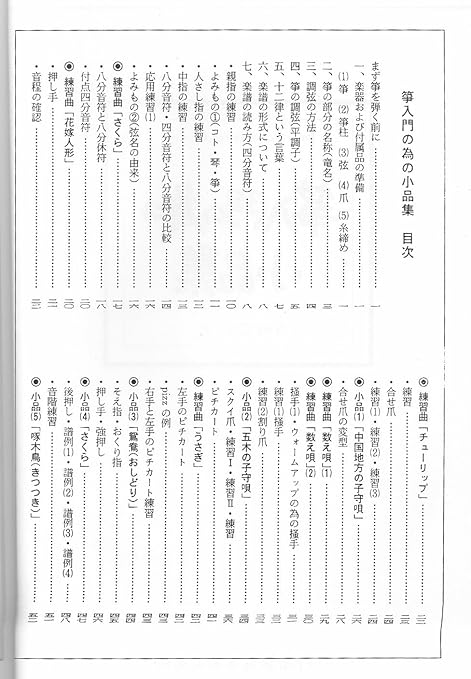 箏入門の為の小品集 目次
まず箏を弾く前に……一
一、楽器および付属品の準備……一
(1)箏 (2)箏柱 (3)弦 (4)爪 (5)糸締め……一
二、箏の部分の名称(竜名)……三
三、調弦の方法……四
四、箏の調弦(平調子)……五
五、十二律という言葉……七
六、楽譜の形式について……八
七、楽譜の読み方(四分音符)……八
・親指の練習……一〇
・よみもの①(コト・琴・箏)……一一
・人さし指の練習……一二
・中指の練習……一三
・八分音符・四分音符と八分音符の比較……一四
・応用練習(1)……一六
・よみもの②(弦名の由来)……一六
◉練習曲「さくら」……一七
・八分音符と八分休符……一八
・付点四分音符……二〇
◉練習曲「花嫁人形」……二〇
・押し手……二一
・音程の確認……二二
◉練習曲「チューリップ」……二三
・練習……二三
・合せ爪……二四
・練習(1)・練習(2)・練習(3)……二四
◉小品(1)「中国地方の子守唄」……二六
・合せ爪の変型……二八
◉練習曲「数え唄」(1)……二九
◉練習曲「数え唄」(2)……三〇
・掛手(1)・ウォームアップの為の掛手……三二
・練習(1)掛手……三三
・練習(2)割り爪……三三
◉小品(2)「五木の子守唄」……三四
・スクイ爪・練習Ⅰ・練習Ⅱ・練習……三六
・ピチカート……四一
◉練習曲「うさぎ」……四二
・左手のピチカート……四二
・pizzの例……四三
・右手と左手のピチカート練習……四三
◉小品(3)「鴛鴦(おしどり)」……四四
・そえ指・おくり指……四五
・押し手・強押し……四六
◉小品(4)「さくら」……四七
・後押し・譜例(1)・譜例(2)・譜例(3)・譜例(4)……四八
・音階練習……五一
◉小品(5)「啄木鳥(きつつき)」……五二